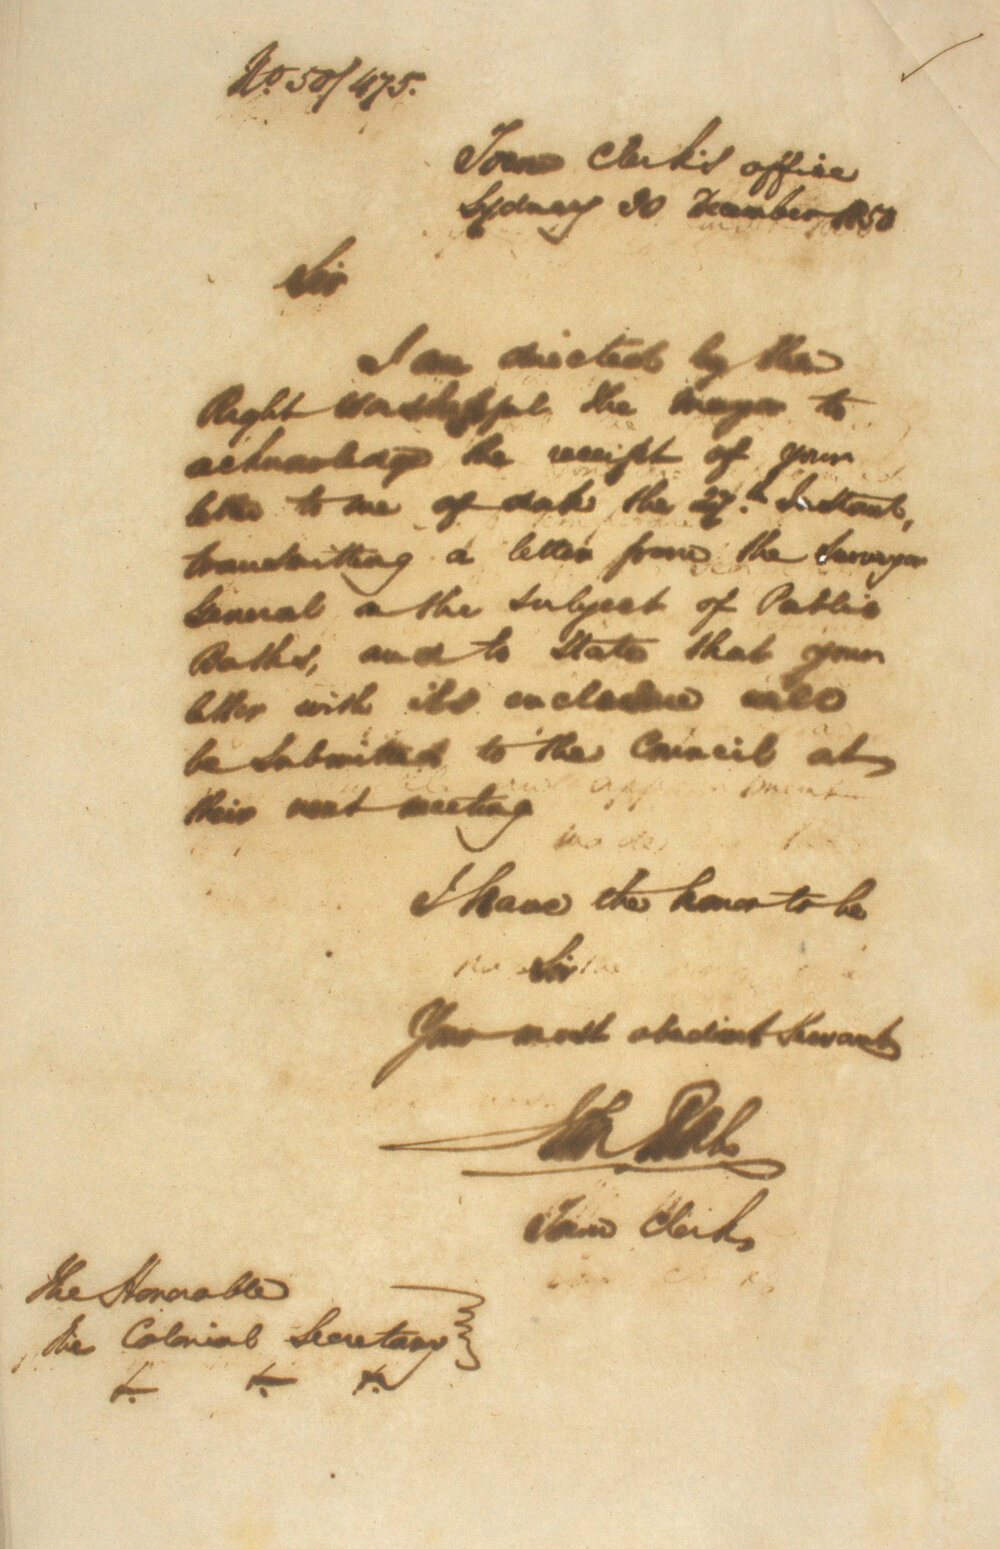 No. 50/475.
Town Clerk's office
Sydney 30 December 1850
Sir
I am directed by the
Right Worshipful the Mayor to
acknowledge the receipt of your
letter to me of date the 27th Instant,
transmitting a letter from the Surveyor
General on the subject of Public
Baths, and to State that your
letter with its enclosure will
be Submitted to the Council at
their next meeting
I have the honor to be
Sir
Your most obedient Servant
Town Clerk
The Honorable
The Colonial Secretary
&c. &c. &c.